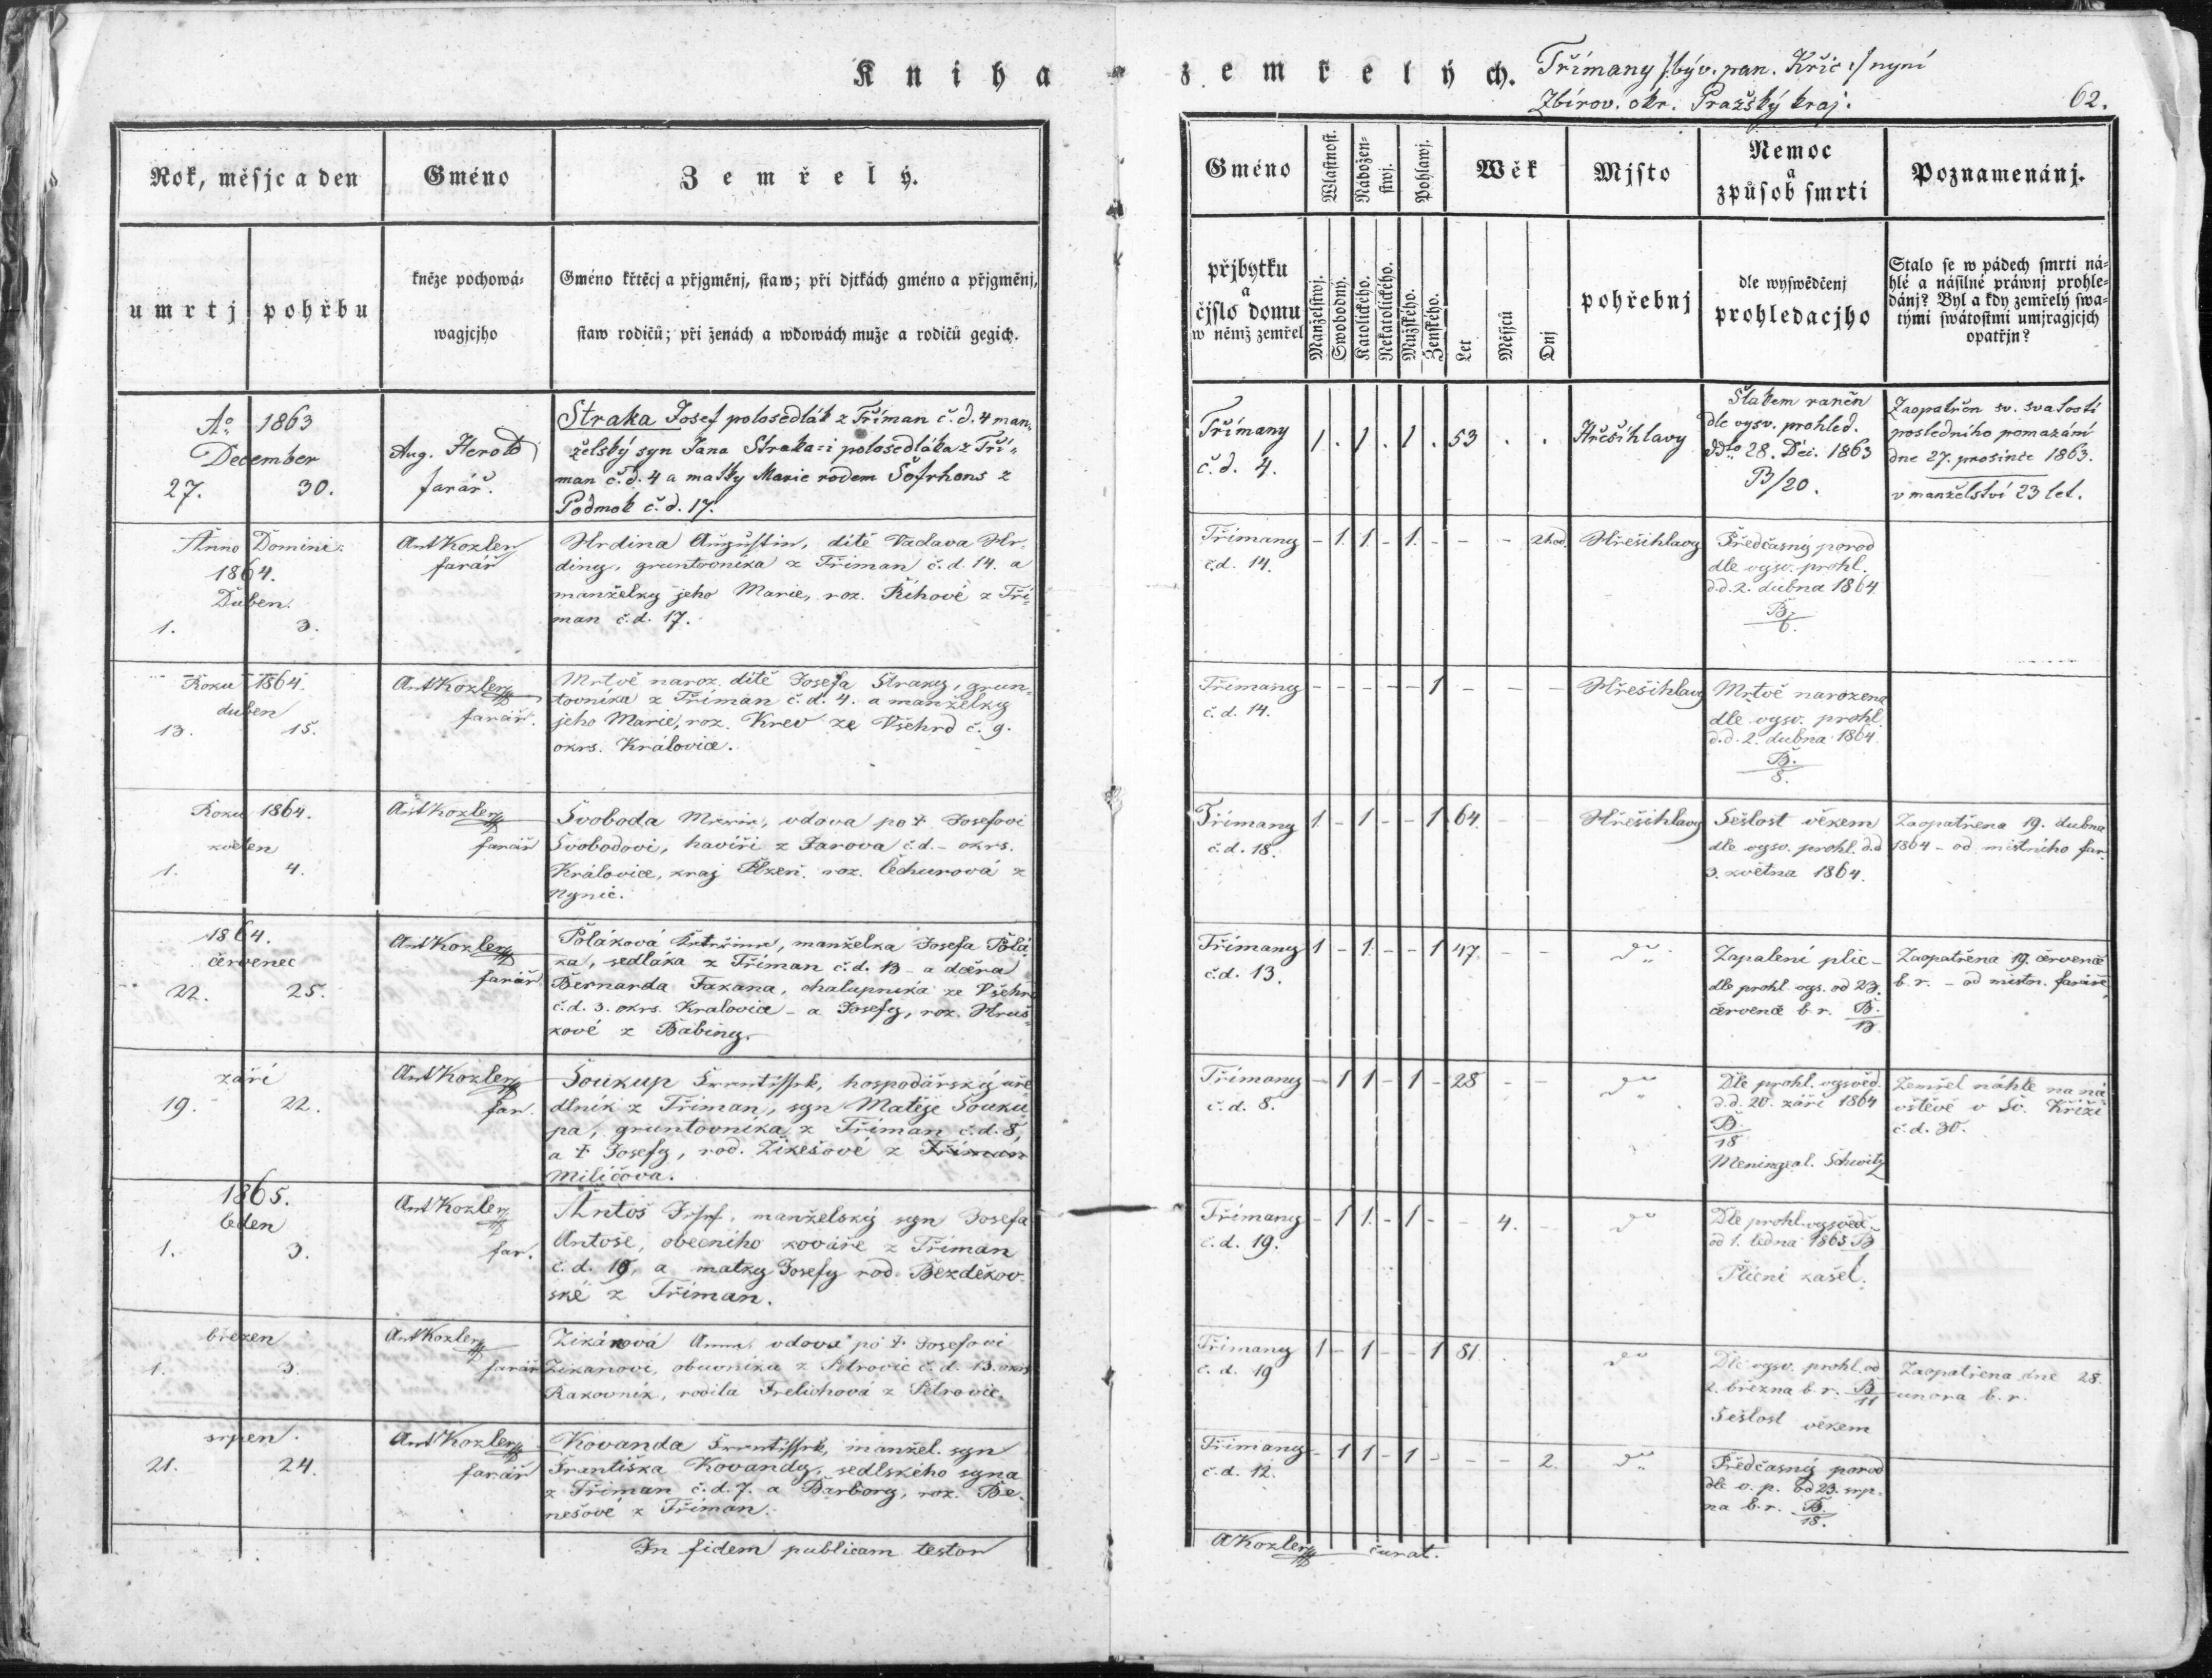 Kniha zemřelých.
Třímany /: býv. pan. Křič :/ nyní
Zbirov. okr. Pražský kraj.
62.
Rok, měsjc a den
Gméno
Zemřelý.
umrtj
pohřbu
kněze pochowá-
wagjcjho
Gméno křtěcj a přjgměnj, staw; při djtkách gméno a přjgměnj,
staw rodičů; při ženách a wdowách muže a rodičů gegich.
Gméno
Wlastnost.
Nábožen-
stwj.
Pohlawj.
Wěk
Mjsto
Nemoc
a
způsob smrti
Poznamenánj.
přjbytku
a
čjslo domu
w němž zemřel
Manželstwj.
Swobodný.
Katolického.
Nekatolického.
Mužského.
Ženského.
Let
Měsjců
Dnj
pohřebnj
dle wyswědčenj
prohledacjho
Stalo se w pádech smrti ná-
hlé a násilné práwnj prohle-
dánj? Byl a kdy zemřelý swa-
tými swátostmi umjragjcjch
opatřjn?
Ao 1863
December
27. 30.
Aug. Herold
farář.
Straka Josef polosedlák z Tříman č. d. 4 man-
želský syn Jana Straka-i polosedláka z Tří-
man č. d. 4 a matky Marie rodem Šofrhans z
Podmok č. d. 17.
Třímany
č. d. 4.
1 . 1 . 1 . 53 . .
Hřešihlavy
Šlakem raněn
dle vysv. prohled.
ddto 28. Dei. 1863
B/20.
Zaopatřen sv. svatostí
posledního pomazání
dne 27. prosince 1863.
v manželství 23 let.
Anno Domini
1864.
Duben.
1. 3.
Ant Kozler
farář
Hrdina Augustin, dítě Václava Hr-
diny, gruntovníka z Tříman č. d. 14. a
manželky jeho Marie, roz. Říhové z Tří-
man č. d. 17.
Třímany
č.d. 14.
- 1 1 - 1 - - - 2 hod.
Hřešihlavy
Předčasný porod
dle vysv. prohl.
d.d. 2. dubna 1864
B/6.
Roku 1864.
duben
13. 15.
Ant Kozler
farář.
Mrtvě naroz. dítě Josefa Straky, grun-
tovníka z Tříman č. d. 4. a manželky
jeho Marie, roz. Krev ze Všehrd č. 9.
okrs. Kralovice.
Třímany
č. d. 14.
- - - - - 1 - - -
Hřešihlavy
Mrtvě narozena
dle vysv. prohl.
d.d. 2. dubna 1864.
B./8.
Roku 1864.
květen
1. 4.
Ant Kozler
farář
Svoboda Marie, vdova po † Josefovi
Svobodovi, havíři z Jarova č.d. - okrs.
Královice, kraj Plzeň. roz. Čechurová z
Nynic.
Třímany
č. d. 18.
1 - 1 - - 1 64 - -
Hřešihlavy
Sešlost věkem
dle vysv. prohl. d.d.
3. května 1864.
Zaopatřena 19. dubna
1864 - od místního far.
1864.
červenec
22. 25.
Ant Kozler
farář
Poláková, manželka Josefa Polá-
ka, sedláka z Tříman č. d. 13 - a dcera
Bernarda Fakana, chalupníka ze Všehrd
č. d. 3. okrs. Kralovice - a Josefy, roz. Hruš-
kové z Babiny.
Třímany
č. d. 13.
1 - 1 - - 1 47 - -
dto
Zapalení plic -
dle prohl. vys. od 23.
července b. r. B./13
Zaopatřena 19. července
b. r. - od místn. faráře
září
19. 22.
Ant Kozler
far.
Soukup František, hospodářský úře-
dlník z Tříman, syn Matěje Souku-
pa, gruntovníka z Tříman č. d. 8,
a † Josefy, rod. Zikešové z Tříman
Miličova.
Třímany
č. d. 8.
- 1 1 - 1 - 28 - -
dto
Dle prohl. vysvěd.
d.d. 20. září 1864
B./18
Meningeal. Schwitz
Zemřel náhle na ná-
vštěvě v Sv. Kříži
č. d. 30.
1865.
leden
1. 3.
Ant Kozler
far.
Antoš Josef, manželský syn Josefa
Antoše, obecního kováře z Tříman
č. d. 19, a matky Josefy rod. Bezděkov-
ské z Tříman.
Třímany
č. d. 19.
- 1 1 - 1 - - 4. -
dto
Dle prohl. vysvěd.
od 1. ledna 1865 B/1
Plicní kašel.
březen
1. 3.
Ant Kozler
farář
Zikánová Anna, vdova po † Josefovi
Zikanovi, obuvníku z Petrovic č. d. 13. okrs.
Rakovník, rodilá Frelichová z Petrovic.
Třímany
č. d. 19
1 - 1 - - 1 81.
dto
Dle vysv. prohl. od
2. března b. r. B/11
Sešlost věkem
Zaopatřena dne 28.
unora b. r.
srpen.
21. 24.
Ant Kozler
farář
Kovanda František, manžel. syn
Františka Kovandy, sedlského syna
z Tříman č. d. 7. a Barbory, roz. Be-
nešové z Tříman.
Třímany
č. d. 12.
- 1 1 - 1 - - - 2.
dto
Předčasný porod
dle v. p. od 23. srp-
na b. r. B./18.
In fidem publicam testor
A Kozler curat.